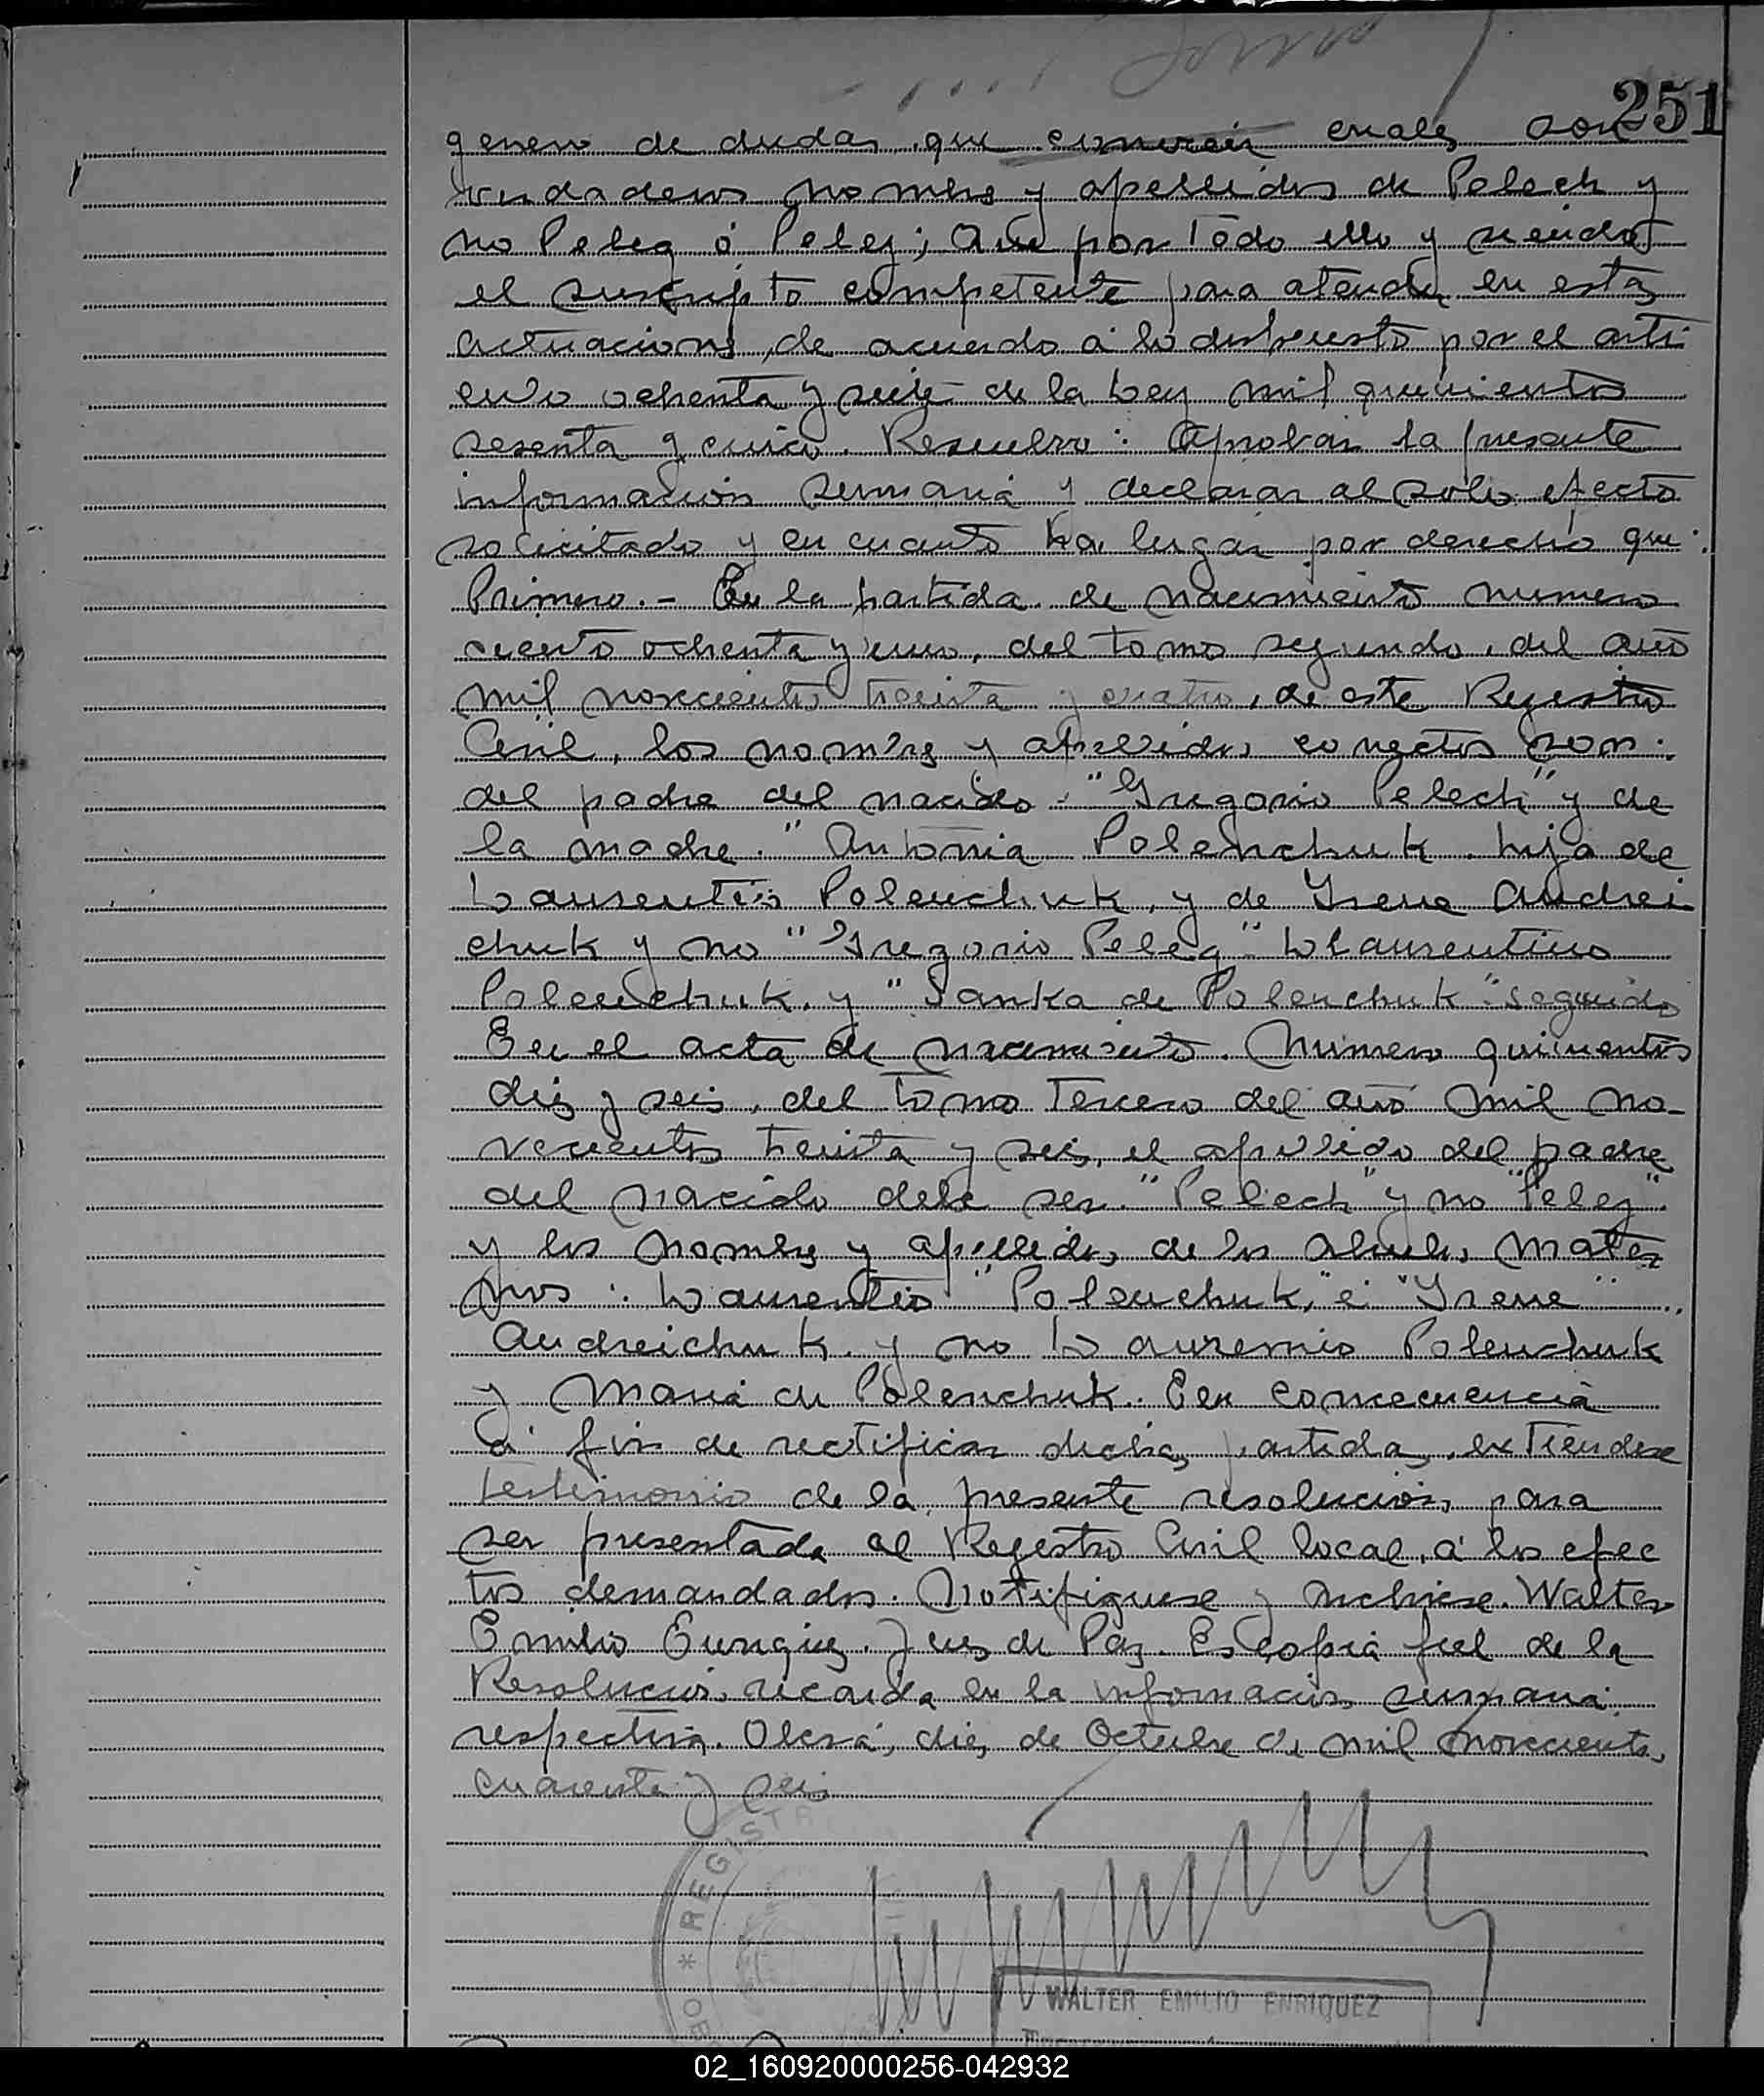 251
genero de dudas que cuales son
verdaderos nombres y apellidos de Pelech y
no Peleg ó Pelez; Que por todo ello y siendo
el suscripto competente para atender en estas
actuaciones, de acuerdo a lo dispuesto por el arti
culo ochenta y siete de la Ley mil quinientos
sesenta y cinco. Resuelvo: Aprobar la presente
información sumaria y declarar al solo efecto
solicitado y en cuanto ha lugar por derecho que:
Primero.- En la partida de nacimiento numero
ciento ochenta y uno, del tomo segundo, del año
mil novecientos treinta y cuatro, de este Registro
Civil, los nombres y apellidos correctos son:
del padre del nacido: "Gregorio Pelech" y de
la madre: "Antonia Polenchuk, hija de
Laurentio Polenchuk, y de Irene Andrei
chuk y no "Gregorio Peleg" Laurentino
Polenchuk, y "Janka de Polenchuk" segundo
En el acta de nacimiento. Numero quinientos
diez y seis, del tomo tercero del año mil no-
vecientos treinta y seis, el apellido del padre
del nacido debe ser "Pelech" y no "Pelez"
y los nombres y apellidos de los abuelos mater
nos: Laurentio "Polenchuk," é "Irene"
Andreichuk. y no Lauremio Polenchuk
y Maria de Polenchuk. En consecuencia
a fin de rectificar dichas partidas, extiendase
testimonio de la presente resolución, para
ser presentada al Registro Civil local, a los efec
tos demandados. Notifiquese y archivese. Walter
Emilio Enriquez. Juez de Paz. Es copia fiel de la
Resolución, recaida en la información sumaria
respectiva. Oberá, diez de Octubre de mil novecientos
cuarenta y seis
REGISTR
WALTER EMILIO ENRIQUEZ
02_160920000256-042932